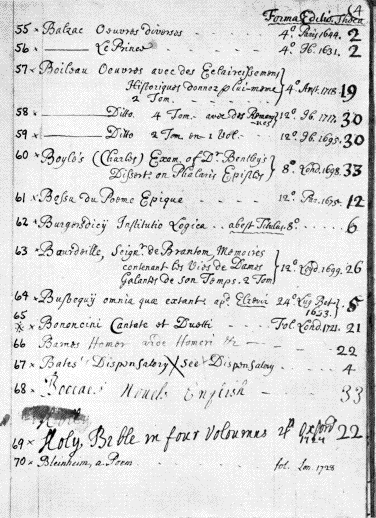 4
Forma Editio. Theca
55 × Balzac Oeuvres diverses - - - 4° Paris 1644. 2
56 × ——— Le Prince - - - 4° Ib. 1631. 2
57 × Boileau Oeuvres avec des Eclaircissemens
Historiques donnez p lui-meme
2 Tom. } 4° Amst. 1718. 19
58 × ——— Ditto 4 Tom. avec des 12° Ib. 1717. 30
59 × ——— Ditto 2 Tom. in 1 Vol. - - 12° Ib. 1695. 30
60 × Boyle's (Charles) Exam. of Dr. Bentley's
Dissert. on Phalaris Epistles } 8° Lond. 1698. 33
61 × Bossu du Poeme Epique - - - 12° Par. 1675. 12
62 × Burgersdicij Institutio Logica - - abest Titulus. 8° - - 6
63 × Bourdeille, Seignr. de Brantom, Memoires
contenant les Vies de Dames
Galantes de son Temps. 2 Tom } 12° Leyd. 1699. 26
64 × Busbequij omnia quæ extant. ap. Elzevir 24° Lug. Bat. 1633. } 5
65
× Bononcini Cantate et Duetti - - Fol Lond. 1721. 21
66 Barnes Homer vide Homeri - - 22
67 × Bates' Dispensatory × See Dispensatory - - 4
68 × Boccace Novels English - - 33
69 × Holy Bible in four Voloumns Oxford 22
70 × Bleinheim, a Poem - - - fol. Lon. 1728